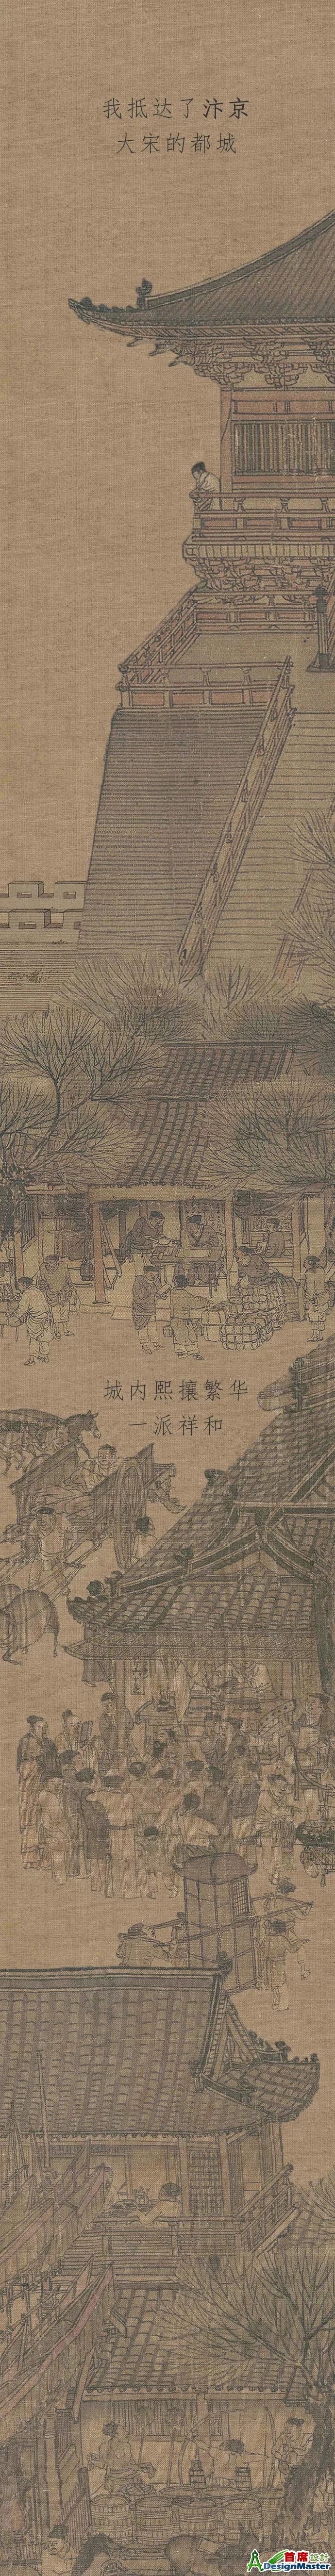 我抵达了汴京
大宋的都城
城内熙攘繁华
一派祥和
首席設計
DesignMaster